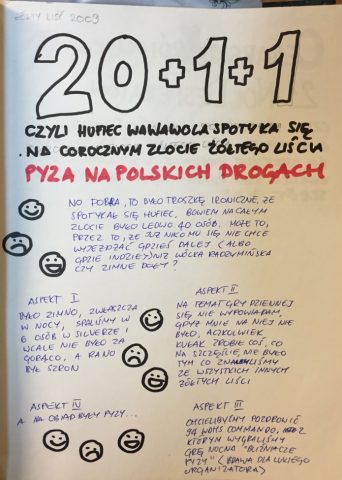 ŻÓŁTY LIŚĆ 2009
20+1+1
CZYLI HUFIEC WAWAWOLA SPOTYKA SIĘ
NA COROCZNYM ZLOCIE ŻÓŁTEGO LIŚCIA
PYZA NA POLSKICH DROGACH
NO DOBRA, TO BYŁO TROSZKĘ IRONICZNE, ŻE
SPOTYKAŁ SIĘ HUFIEC, BOWIEM NA CAŁYM
ZLOCIE BYŁO LEDWO 40 OSÓB. MOŻE TO,
PRZEZ TO, ŻE JUŻ NIKOMU SIĘ NIE CHCE
WYJEŻDŻAĆ GDZIEŚ DALEJ (ALBO
GDZIE INDZIEJ) NIŻ WÓLKA RADZYMIŃSKA
CZY ZIMNE DOŁY?
ASPEKT I
BYŁO ZIMNO, ZWŁASZCZA
W NOCY, SPALIŚMY W
6 OSÓB W SILVERZE I
WCALE NIE BYŁO ZA
GORĄCO, A RANO
BYŁ SZRON
ASPEKT II
NA TEMAT GRY DZIENNEJ
SIĘ NIE WYPOWIADAM,
GDYŻ MNIE NA NIEJ NIE
BYŁO, ACZKOLWIEK
KUŁAK ZROBIŁ COŚ, CO
NA SZCZĘŚCIE NIE BYŁO
TYM CO ZNALIŚMY
ZE WSZYSTKICH INNYCH
ŻÓŁTYCH LIŚCI
ASPEKT IV
A NA OBIAD BYŁY PYZY...
ASPEKT III
CHCIELIBYŚMY POZDROWIĆ
94 WDHS COMMANDO, Z
KTÓRYM WYGRALIŚMY
GRĘ NOCNĄ "BLIŹNIACZE
PYZY" (BRAWA DLA LUKIEGO
ORGANIZATORA)